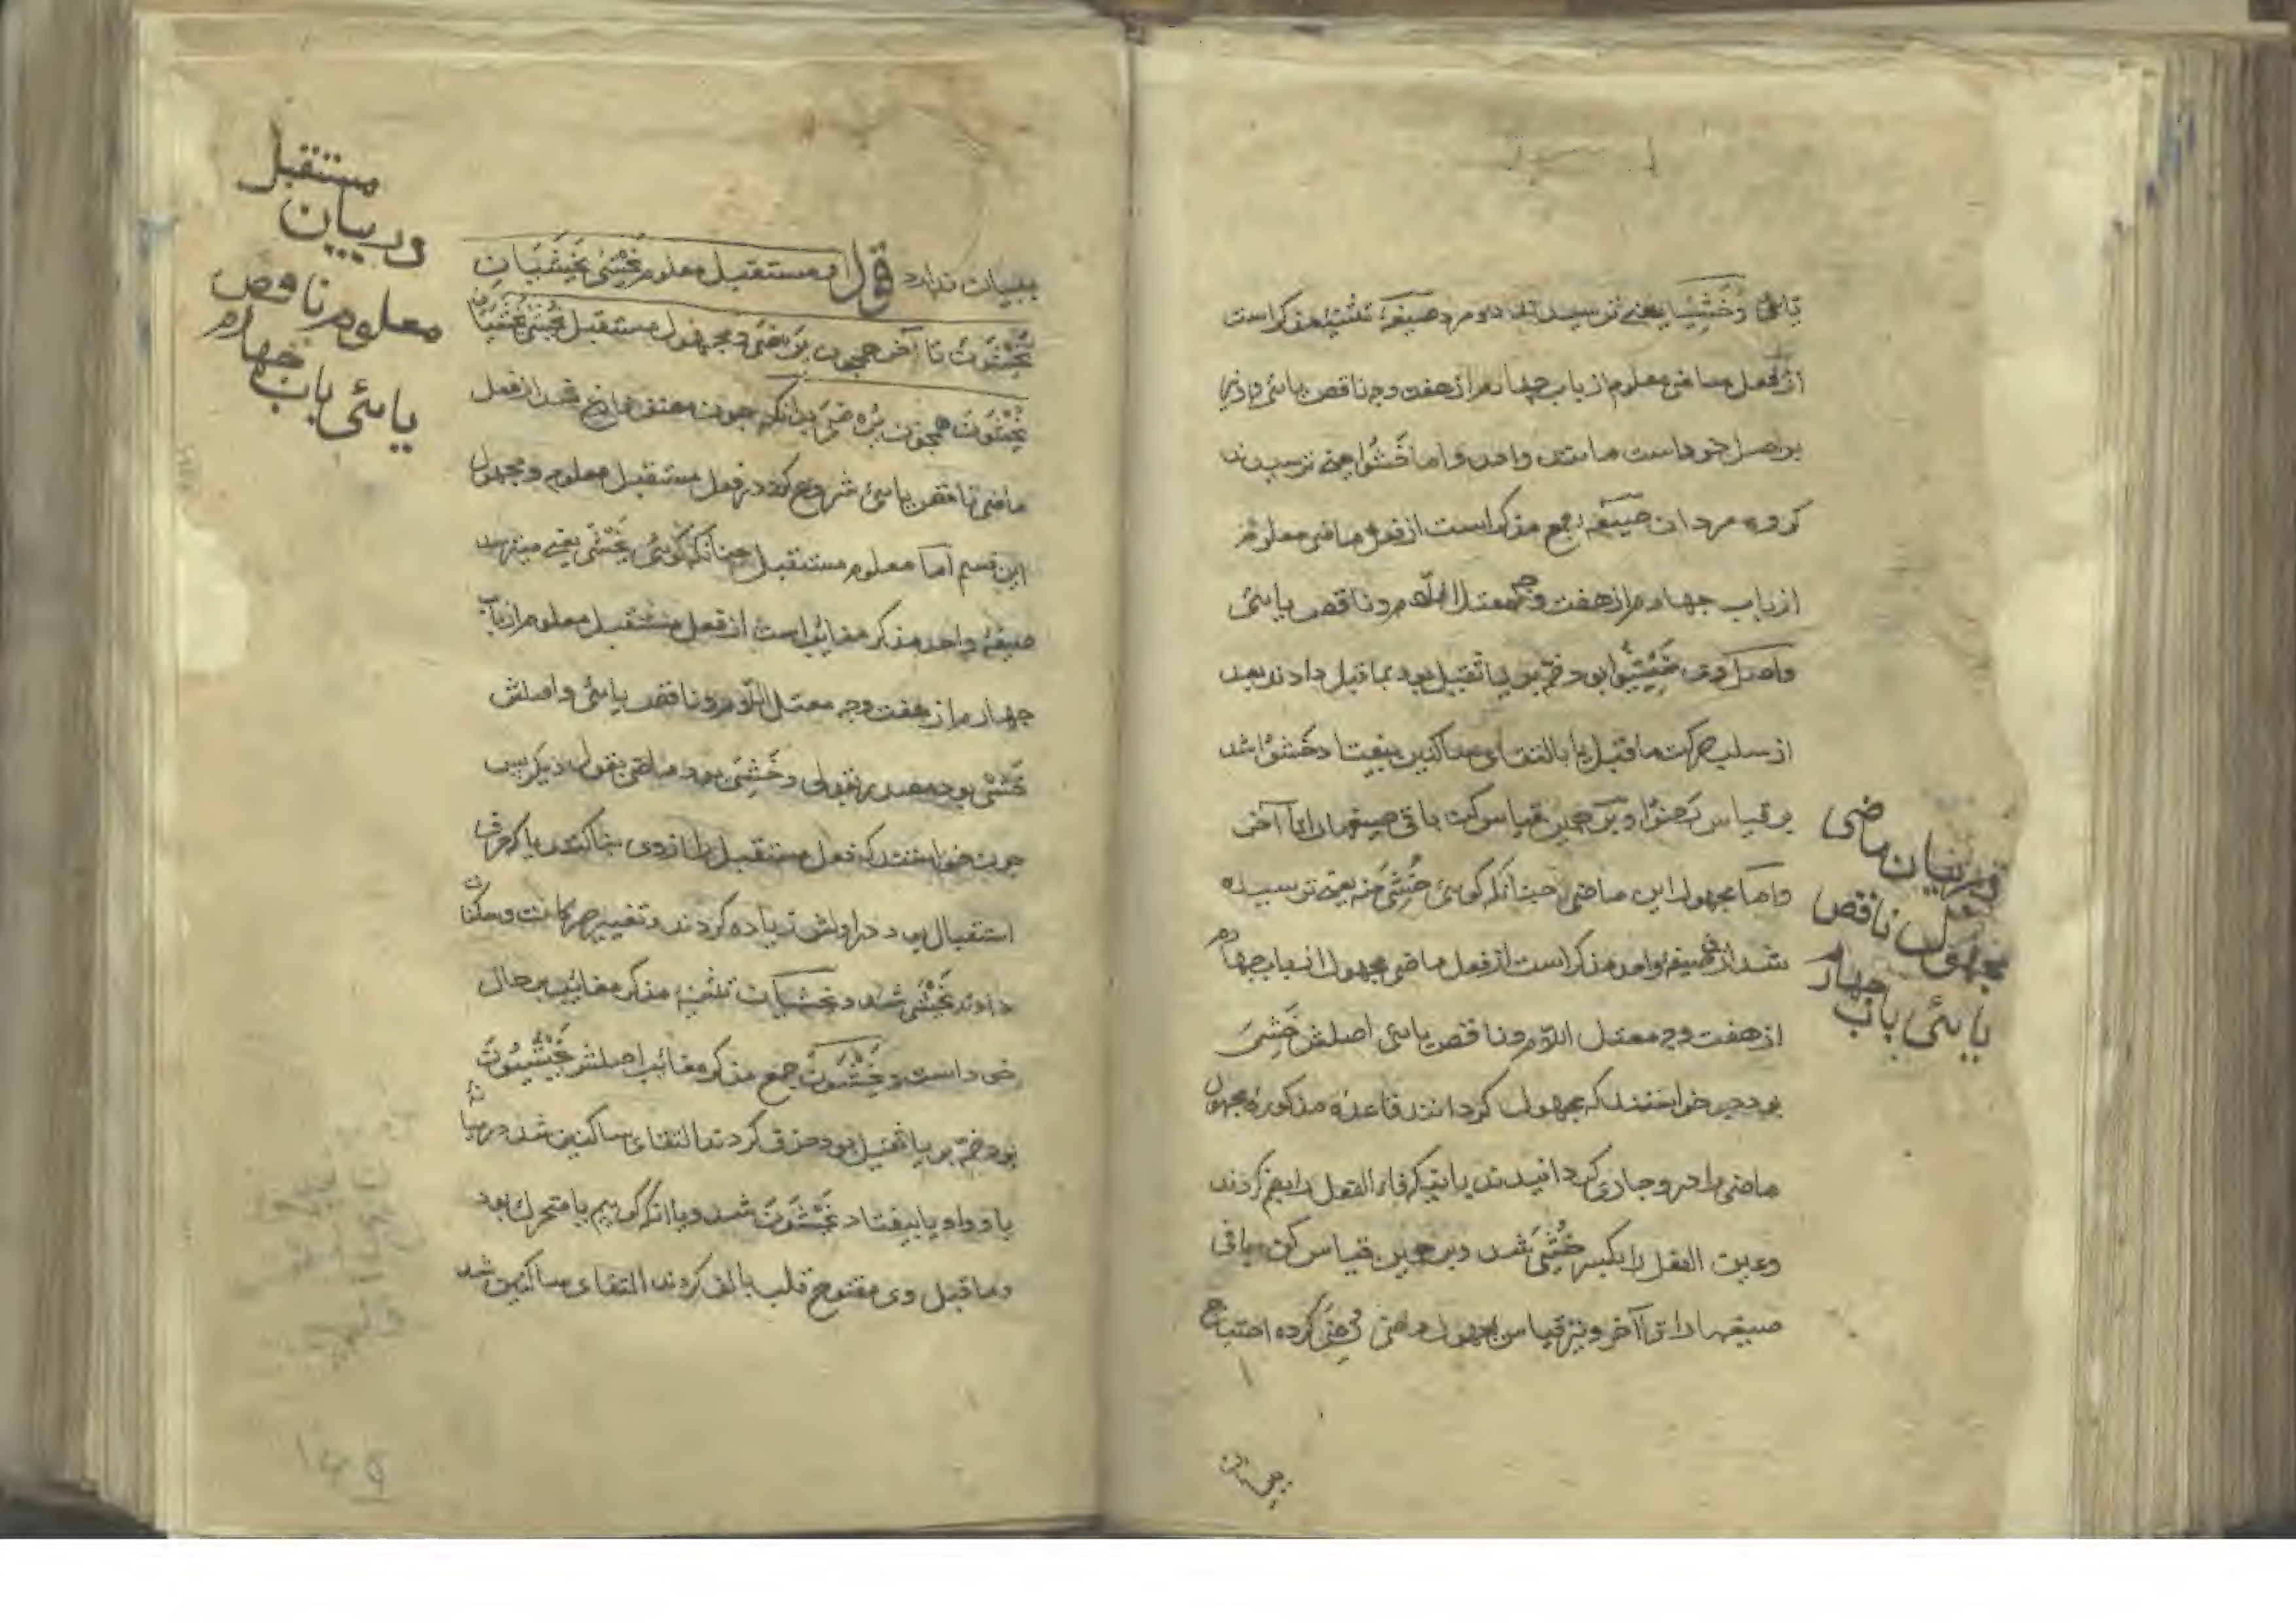 یائی وخَشِیَا یعنی ترسیدند دو مرد صیغهٔ تثنیه مذکر است
از فعل ماضی معلوم از باب چهارم از هفت وجه ناقص یائی
بر اصل خود است مانند واحد واما خَشُوا یعنی ترسیدند
کروه مردان صیغهٔ جمع مذکر است از فعل ماضی معلوم
از باب چهارم از هفت وجه معتل اللام وناقص یائی
واصل وی خَشِیُوا بود ضم بر یا ثقیل بود بما قبل دادند بعد
از سلب حرکت ما قبل یا بالتقای ساکنین بیفتاد خَشُوا شد
بر قیاس رَضُوا وبر همین قیاس کن باقی صیغها را تا آخر
واما مجهول این ماضی چنانکه کوئی خُشِیَ منه یعنی ترسیده
شد از وی صیغهٔ واحد مذکر است از فعل ماضی مجهول از باب چهارم
از هفت وجه معتل اللام وناقص یائی اصلش خَشِیَ
بود چون خواستند که مجهول کردانند قاعدهٔ مذکورهٔ مجهول
ماضی را در و جاری کردانیدند فاء الفعل را بضم کردند
وعین الفعل را بکسر خُشِیَ شد وبر همین قیاس کن باقی
صیغها را تا آخر ونیز قیاس مجهول رضی رُضِیَ کرده احتیاج
در بیان ماضی
مجهول ناقص
یائی باب چهارم
ببیان ندارد قوله ومستقبل معلوم یَخْشٰی یَخْشَیَانِ
یَخْشَوْنَ تا آخر همچون یَرْضٰی ومجهول مستقبل یُخْشٰی یُخْشَیَانِ
یُخْشَوْنَ همچون یُرْضٰی بدانکه چون مصنف فارغ شد از فعل
ماضی ناقص یائی شروع کرد در فعل مستقبل معلوم ومجهول
این قسم اما معلوم مستقبل چنانکه کوئی یَخْشٰی یعنی میترسد
صیغهٔ واحد مذکر مغایب است از فعل مستقبل معلوم از باب
چهارم از هفت وجه معتل اللام وناقص یائی واصلش
خَشْی بود مصدر بقولی وخَشِیَ بود ماضی بقول دیکر پس
چون خواستند که فعل مستقبل را از وی بنا کنند یا که حرف
استقبال بود در اولش زیاده کردند وتغییر حرکات وسکنات
دادند یَخْشٰی شد ویخشیان تثنیه مذکر مغایب بر حال
خود است ویَخْشَوْنَ جمع مذکر مغائب اصلش یَخْشَیُوْنَ
بود ضم بر یا ثقیل بود حذف کردند التقای ساکنین شد در میان
یا و واو یا بیفتاد یَخْشَوْنَ شد ویا آنکه کوییم یا متحرک بود
وما قبل وی مفتوح قلب بالف کردند التقای ساکنین شد
مستقبل
در بیان
معلوم ناقص
یائی باب چهارم